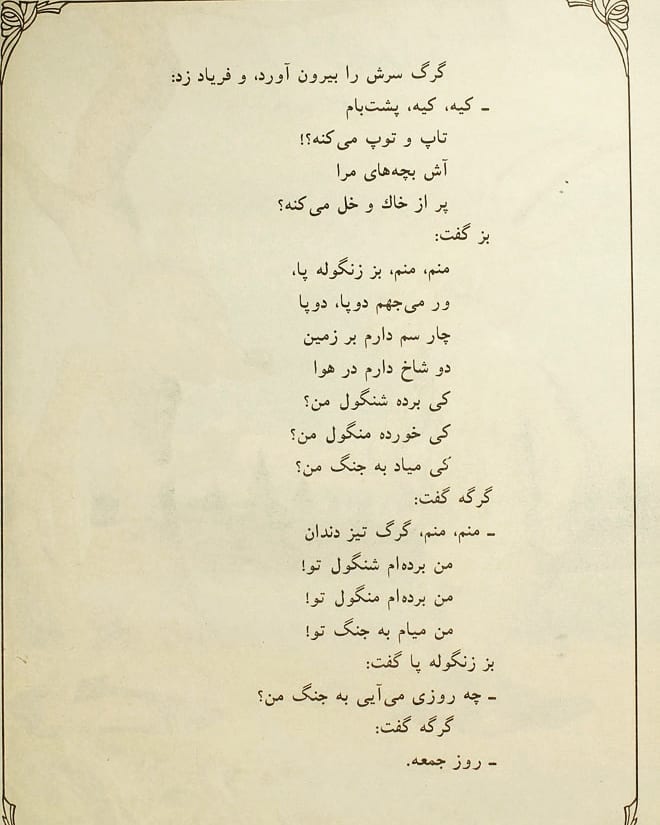 گرگ سرش را بیرون آورد، و فریاد زد:
ـ کیه، کیه، پشت‌بام
تاپ و توپ می‌کنه؟!
آش بچه‌های مرا
پر از خاك و خل می‌کنه؟
بز گفت:
منم، منم، بز زنگوله پا،
ور می‌جهم دوپا، دوپا
چار سم دارم بر زمین
دو شاخ دارم در هوا
کی برده شنگول من؟
کی خورده منگول من؟
کی میاد به جنگ من؟
گرگه گفت:
ـ منم، منم، گرگ تیز دندان
من برده‌ام شنگول تو!
من برده‌ام منگول تو!
من میام به جنگ تو!
بز زنگوله پا گفت:
ـ چه روزی می‌آیی به جنگ من؟
گرگه گفت:
ـ روز جمعه.